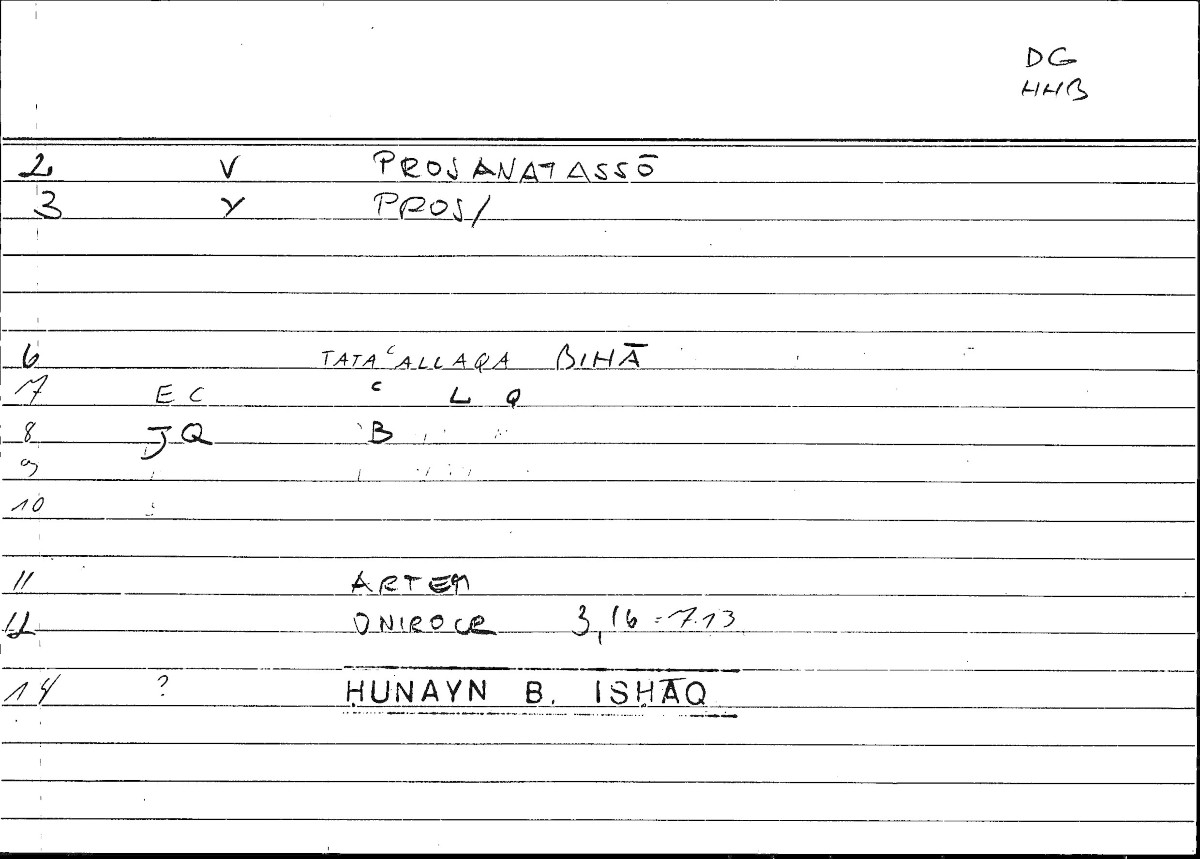 DG
HHB
2 V PROSANATASSŌ
3 Y PROS/
6 TATAʿALLAQA BIHĀ
7 EC ʿ L Q
8 JQ B
9
10
11 ARTEM
12 ONIROCR 3,16 = 7.13
14 ? ḤUNAYN B. ISḤĀQ